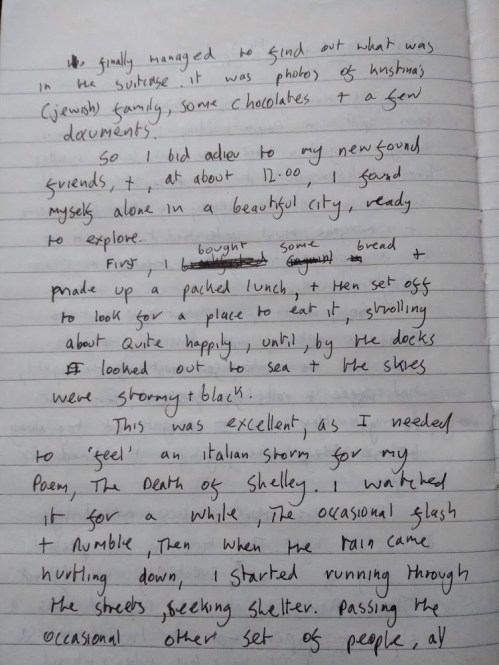 I finally managed to find out what was
in the suitcase. it was photos of Kristina's
(jewish) family, some chocolates + a few
documents.
So I bid adieu to my newfound
friends, +, at about 12.00, I found
myself alone in a beautiful city, ready
to explore.
First, I bought some bread +
made up a packed lunch, + then set off
to look for a place to eat it, strolling
about quite happily, until, by the docks
I looked out to sea + the skies
were stormy + black.
This was excellent, as I needed
to 'feel' an italian storm for my
Poem, The Death of Shelley. I watched
it for a while, The occasional flash
+ rumble, Then when the rain came
hurtling down, I started running through
the streets, seeking shelter. Passing the
occasional other set of people, all